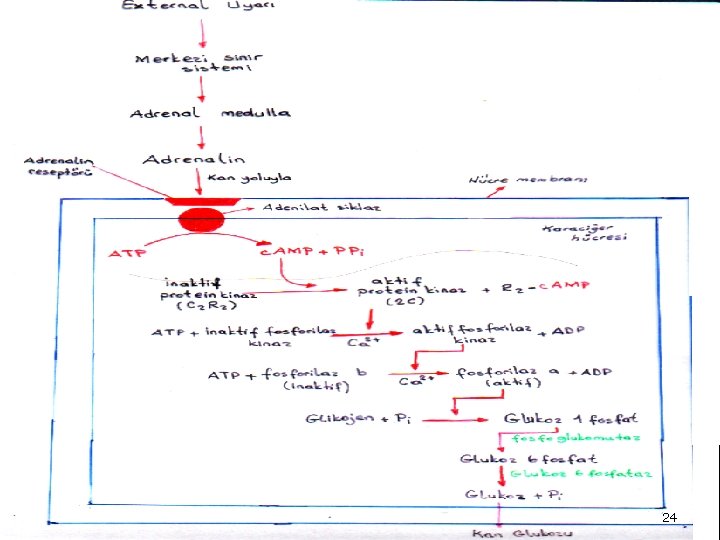 External Uyarı
Merkezi sinir
sistemi
Adrenal medulla
Adrenalin
Adrenalin
reseptörü
Kan yoluyla
Hücre membranı
Adenilat siklaz
Karaciğer
hücresi
ATP
cAMP + PPi
inaktif
protein kinaz
(C2R2)
aktif
protein kinaz + R2-cAMP
(2C)
ATP + inaktif fosforilaz
kinaz
Ca2+
aktif fosforilaz + ADP
kinaz
ATP + fosforilaz b
(inaktif)
Ca2+
fosforilaz a + ADP
(aktif)
Glikojen + Pi
Glukoz 1 fosfat
fosfoglukomutaz
Glukoz 6 fosfat
Glukoz 6 fosfataz
Glukoz + Pi
24
Kan Glukozu